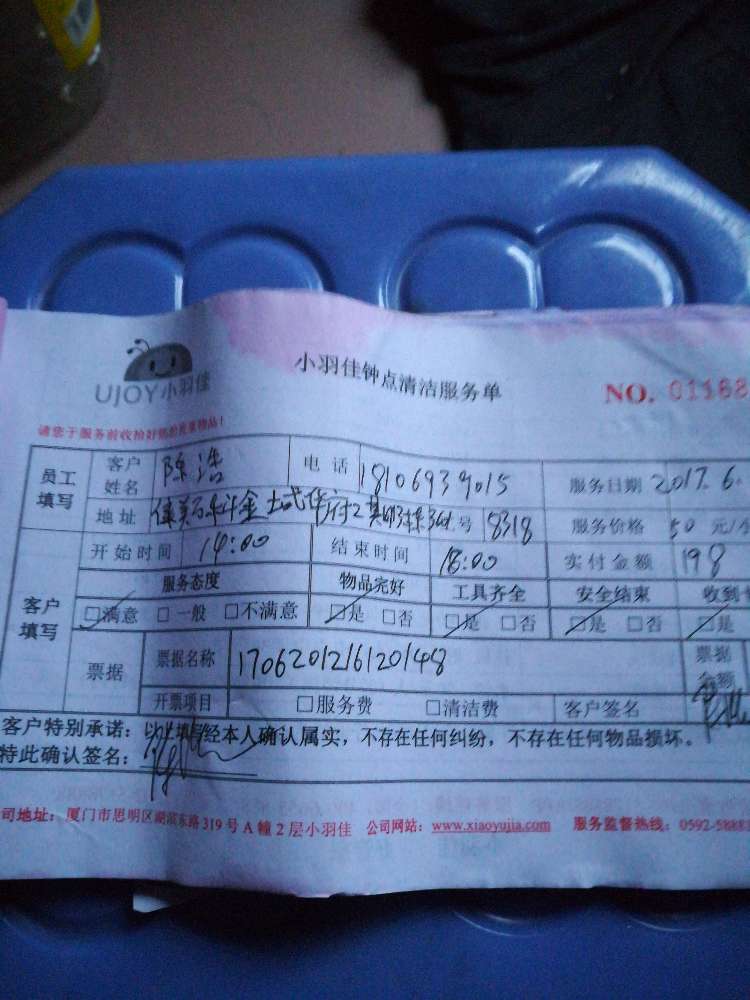 UJOY小羽佳
小羽佳钟点清洁服务单
NO. 01168
请您于服务前收拾好您的贵重物品!
员工填写 客户姓名 陈浩 电话 18106939015 服务日期 2017.6.
地址 号 8318 服务价格 50 元/小
开始时间 14:00 结束时间 18:00 实付金额 198
客户填写 服务态度 物品完好 工具齐全 安全结束 收到
□满意 □一般 □不满意 □是 □否 □是 □否 □是 □否 □是
票据 票据名称 170620121612048 票据金额
开票项目 □服务费 □清洁费 客户签名
客户特别承诺:以上填写经本人确认属实,不存在任何纠纷,不存在任何物品损坏。
特此确认签名:
司地址:厦门市思明区湖滨东路319号A幢2层小羽佳 公司网站:www.xiaoyujia.com 服务监督热线:0592-5888